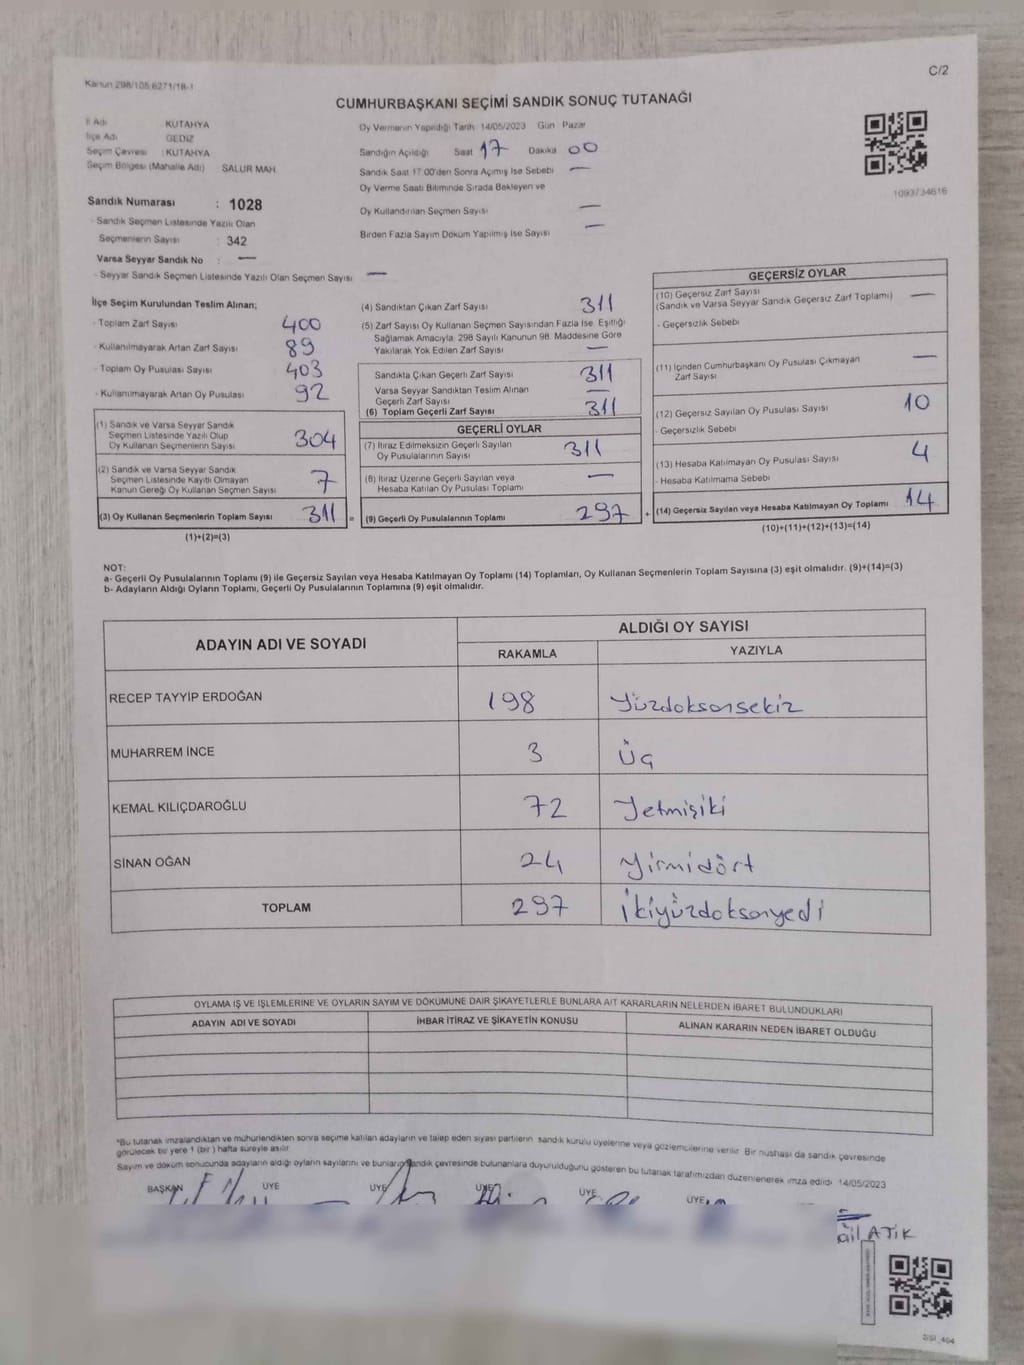 Kanun 298/105,6271/18-1
C/2
CUMHURBAŞKANI SEÇİMİ SANDIK SONUÇ TUTANAĞI
İl Adı KUTAHYA
İlçe Adı GEDİZ
Seçim Çevresi : KUTAHYA
Seçim Bölgesi (Mahalle Adı) SALUR MAH.
Oy Vermenin Yapıldığı Tarih 14/05/2023 Gün Pazar
Sandığın Açıldığı Saat 17 Dakika 00
Sandık Saat 17:00'den Sonra Açımış İse Sebebi —
Oy Verme Saati Bitiminde Sırada Bekleyen ve
Oy Kullandırılan Seçmen Sayısı —
Birden Fazla Sayım Döküm Yapılmış İse Sayısı —
1093734616
Sandık Numarası : 1028
- Sandık Seçmen Listesinde Yazılı Olan
Seçmenlerin Sayısı : 342
Varsa Seyyar Sandık No : —
- Seyyar Sandık Seçmen Listesinde Yazılı Olan Seçmen Sayısı —
İlçe Seçim Kurulundan Teslim Alınan;
- Toplam Zarf Sayısı 400
- Kullanılmayarak Artan Zarf Sayısı 89
- Toplam Oy Pusulası Sayısı 403
- Kullanılmayarak Artan Oy Pusulası 92
(1) Sandık ve Varsa Seyyar Sandık
Seçmen Listesinde Yazılı Olup
Oy Kullanan Seçmenlerin Sayısı 304
(2) Sandık ve Varsa Seyyar Sandık
Seçmen Listesinde Kayıtlı Olmayan
Kanun Gereği Oy Kullanan Seçmen Sayısı 7
(3) Oy Kullanan Seçmenlerin Toplam Sayısı 311 =
(1)+(2)=(3)
(4) Sandıktan Çıkan Zarf Sayısı 311
(5) Zarf Sayısı Oy Kullanan Seçmen Sayısından Fazla İse, Eşitliği
Sağlamak Amacıyla 298 Sayılı Kanunun 98. Maddesine Göre
Yakılarak Yok Edilen Zarf Sayısı —
Sandıkta Çıkan Geçerli Zarf Sayısı 311
Varsa Seyyar Sandıktan Teslim Alınan
Geçerli Zarf Sayısı —
(6) Toplam Geçerli Zarf Sayısı 311
GEÇERLİ OYLAR
(7) İtiraz Edilmeksizin Geçerli Sayılan
Oy Pusulalarının Sayısı 311
(8) İtiraz Üzerine Geçerli Sayılan veya
Hesaba Katılan Oy Pusulası Toplamı —
(9) Geçerli Oy Pusulalarının Toplamı 297 +
GEÇERSİZ OYLAR
(10) Geçersiz Zarf Sayısı
(Sandık ve Varsa Seyyar Sandık Geçersiz Zarf Toplamı) —
- Geçersizlik Sebebi
(11) İçinden Cumhurbaşkanı Oy Pusulası Çıkmayan
Zarf Sayısı —
(12) Geçersiz Sayılan Oy Pusulası Sayısı 10
- Geçersizlik Sebebi
(13) Hesaba Katılmayan Oy Pusulası Sayısı 4
- Hesaba Katılmama Sebebi
(14) Geçersiz Sayılan veya Hesaba Katılmayan Oy Toplamı 14
(10)+(11)+(12)+(13)=(14)
NOT:
a- Geçerli Oy Pusulalarının Toplamı (9) ile Geçersiz Sayılan veya Hesaba Katılmayan Oy Toplamı (14) Toplamları, Oy Kullanan Seçmenlerin Toplam Sayısına (3) eşit olmalıdır. (9)+(14)=(3)
b- Adayların Aldığı Oyların Toplamı, Geçerli Oy Pusulalarının Toplamına (9) eşit olmalıdır.
ADAYIN ADI VE SOYADI ALDIĞI OY SAYISI
RAKAMLA YAZIYLA
RECEP TAYYİP ERDOĞAN 198 Yüzdoksansekiz
MUHARREM İNCE 3 Üç
KEMAL KILIÇDAROĞLU 72 Yetmişiki
SİNAN OĞAN 24 Yirmidört
TOPLAM 297 İkiyüzdoksanyedi
OYLAMA İŞ VE İŞLEMLERİNE VE OYLARIN SAYIM VE DÖKÜMÜNE DAİR ŞİKAYETLERLE BUNLARA AİT KARARLARIN NELERDEN İBARET BULUNDUKLARI
ADAYIN ADI VE SOYADI İHBAR İTİRAZ VE ŞİKAYETİN KONUSU ALINAN KARARIN NEDEN İBARET OLDUĞU
*Bu tutanak imzalandıktan ve mühürlendikten sonra seçime katılan adayların ve talep eden siyasi partilerin sandık kurulu üyelerine veya gözlemcilerine verilir. Bir nüshası da sandık çevresinde
görülecek bir yere 1 (bir) hafta süreyle asılır.
Sayım ve döküm sonucunda adayların aldığı oyların sayılarını ve bunların sandık çevresinde bulunanlara duyurulduğunu gösteren bu tutanak tarafımızdan düzenlenerek imza edildi. 14/05/2023
BAŞKAN ÜYE ÜYE ÜYE ÜYE ÜYE
ail ATIK